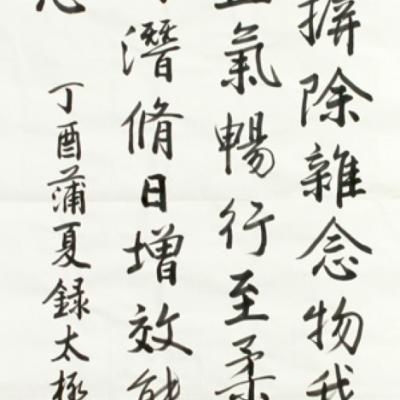 摒除雜念物我
氣暢行至柔
潛脩日增效能
丁酉蒲夏錄太極